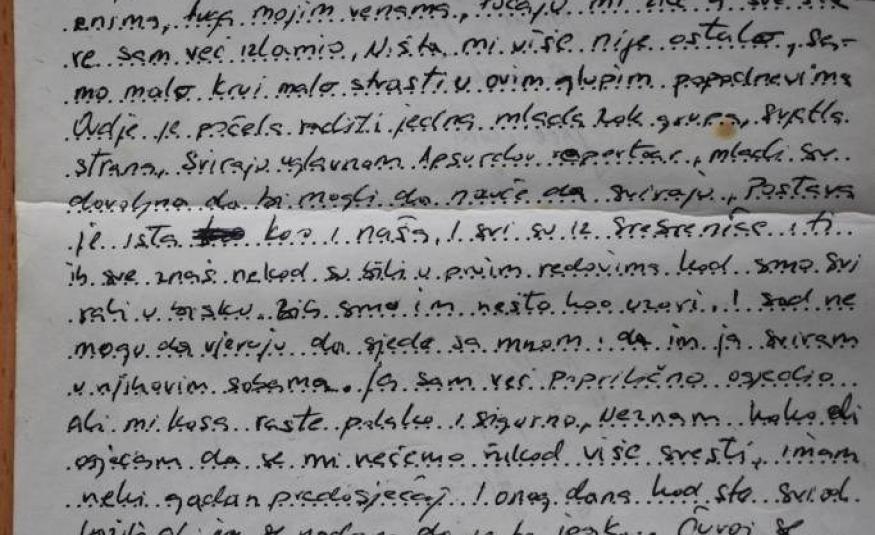 mojim venama,
re sam već izlamio, Ništa mi više nije ostalo, sa-
mo malo krvi malo strasti u ovim glupim popodnevima
Ovdje je počela raditi jedna mlada rok grupa, Svjetla
strana, Sviraju uglavnom Apsurdov repertoar, mladi su
dovoljno da bi mogli da nauče da sviraju, Postava
je ista kao i naša, I svi su iz Srebrenice i ti
ih sve znaš nekad su bili u prvim redovima kad smo svi
rali u bisku. Bili smo im nešto kao uzori, I sad ne
mogu da vjeruju da sjede sa mnom i da im ja sviram
u njihovim sobama. Ja sam već poprilično osjedio
Ali mi kosa raste polako i sigurno, Neznam kako di
osjećam da se mi nećemo nikad više sresti, imam
neki gadan predosjećaj I onog dana kad sto
da Čuvaj se